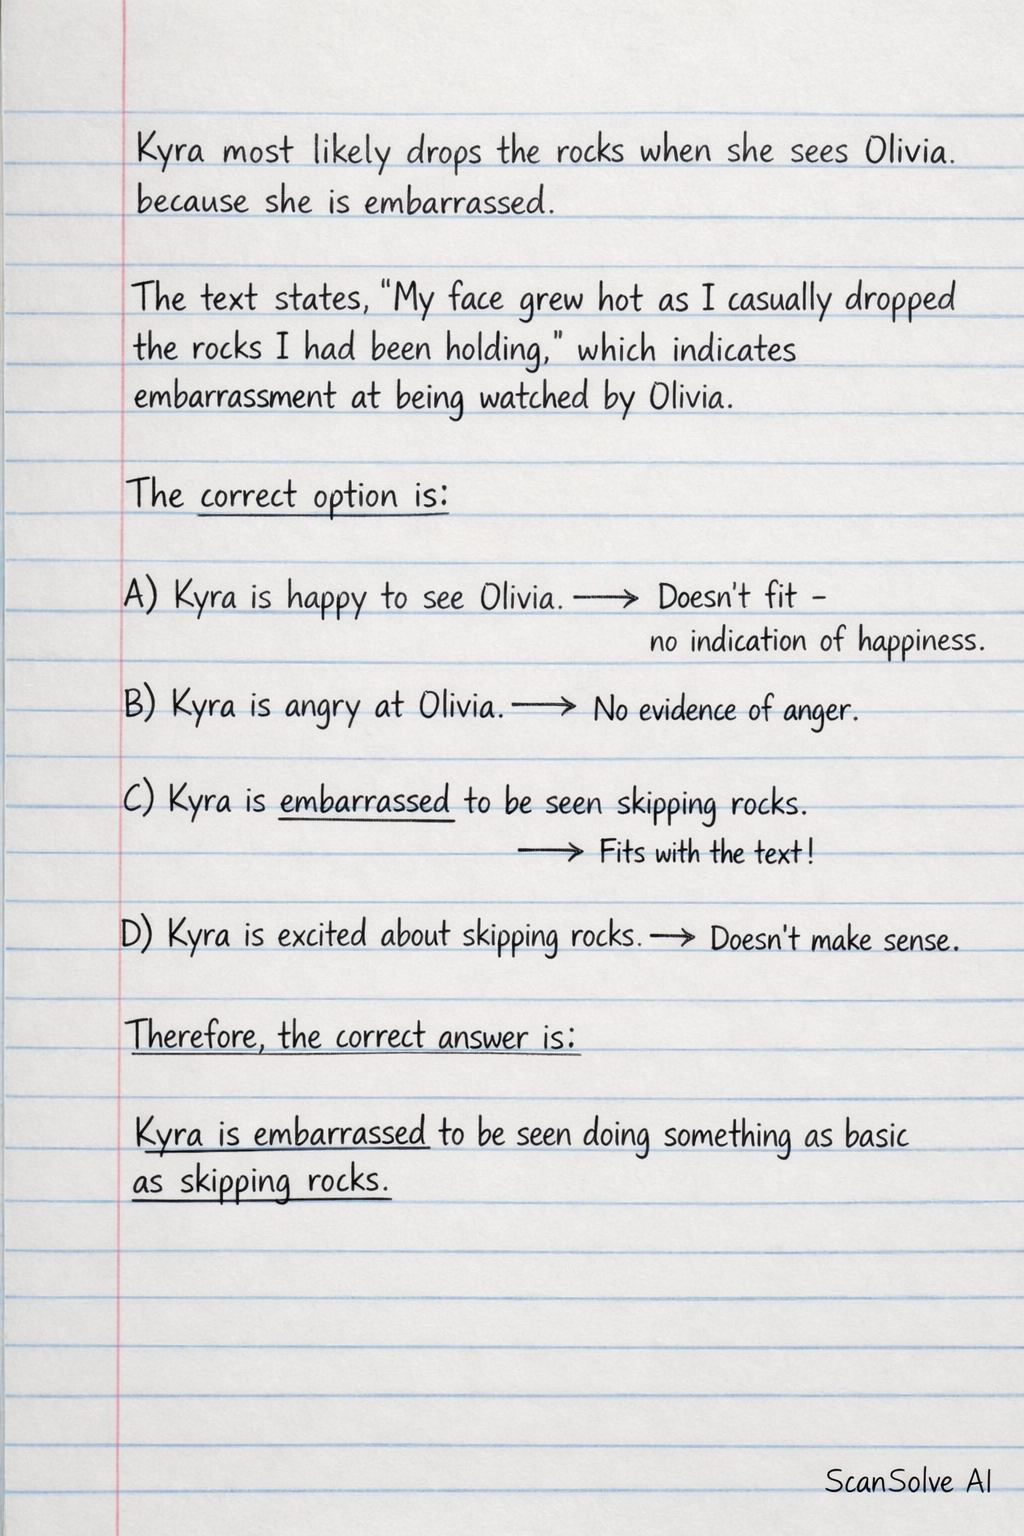 Kyra most likely drops the rocks when she sees Olivia.
because she is embarrassed.
The text states, "My face grew hot as I casually dropped
the rocks I had been holding," which indicates
embarrassment at being watched by Olivia.
The correct option is:
A) Kyra is happy to see Olivia. → Doesn't fit –
no indication of happiness.
B) Kyra is angry at Olivia. → No evidence of anger.
C) Kyra is embarrassed to be seen skipping rocks.
→ Fits with the text!
D) Kyra is excited about skipping rocks. → Doesn't make sense.
Therefore, the correct answer is:
Kyra is embarrassed to be seen doing something as basic
as skipping rocks.
ScanSolve AI